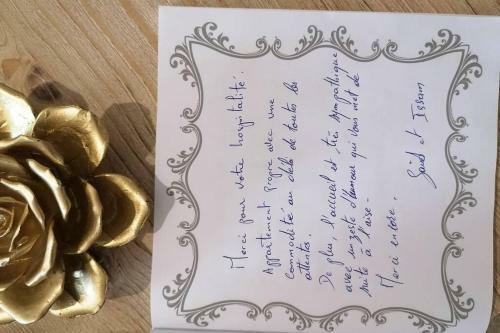 Merci pour votre hospitalité.
Appartement propre avec une
commodité au delà de toutes les
attentes.
De plus, l'accueil est très sympathique
avec un zeste d'humour qui vous met de
suite à l'aise.
Merci encore.
Said et Issam